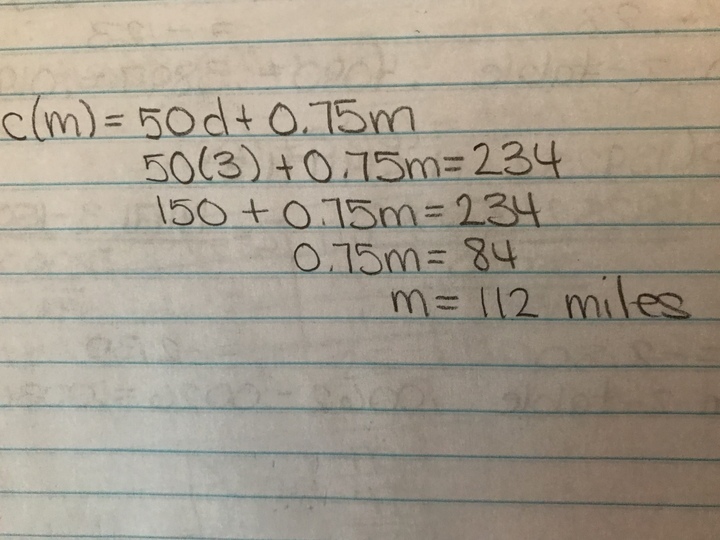 c(m) = 50d + 0.75m
50(3) + 0.75m = 234
150 + 0.75m = 234
0.75m = 84
m = 112 miles